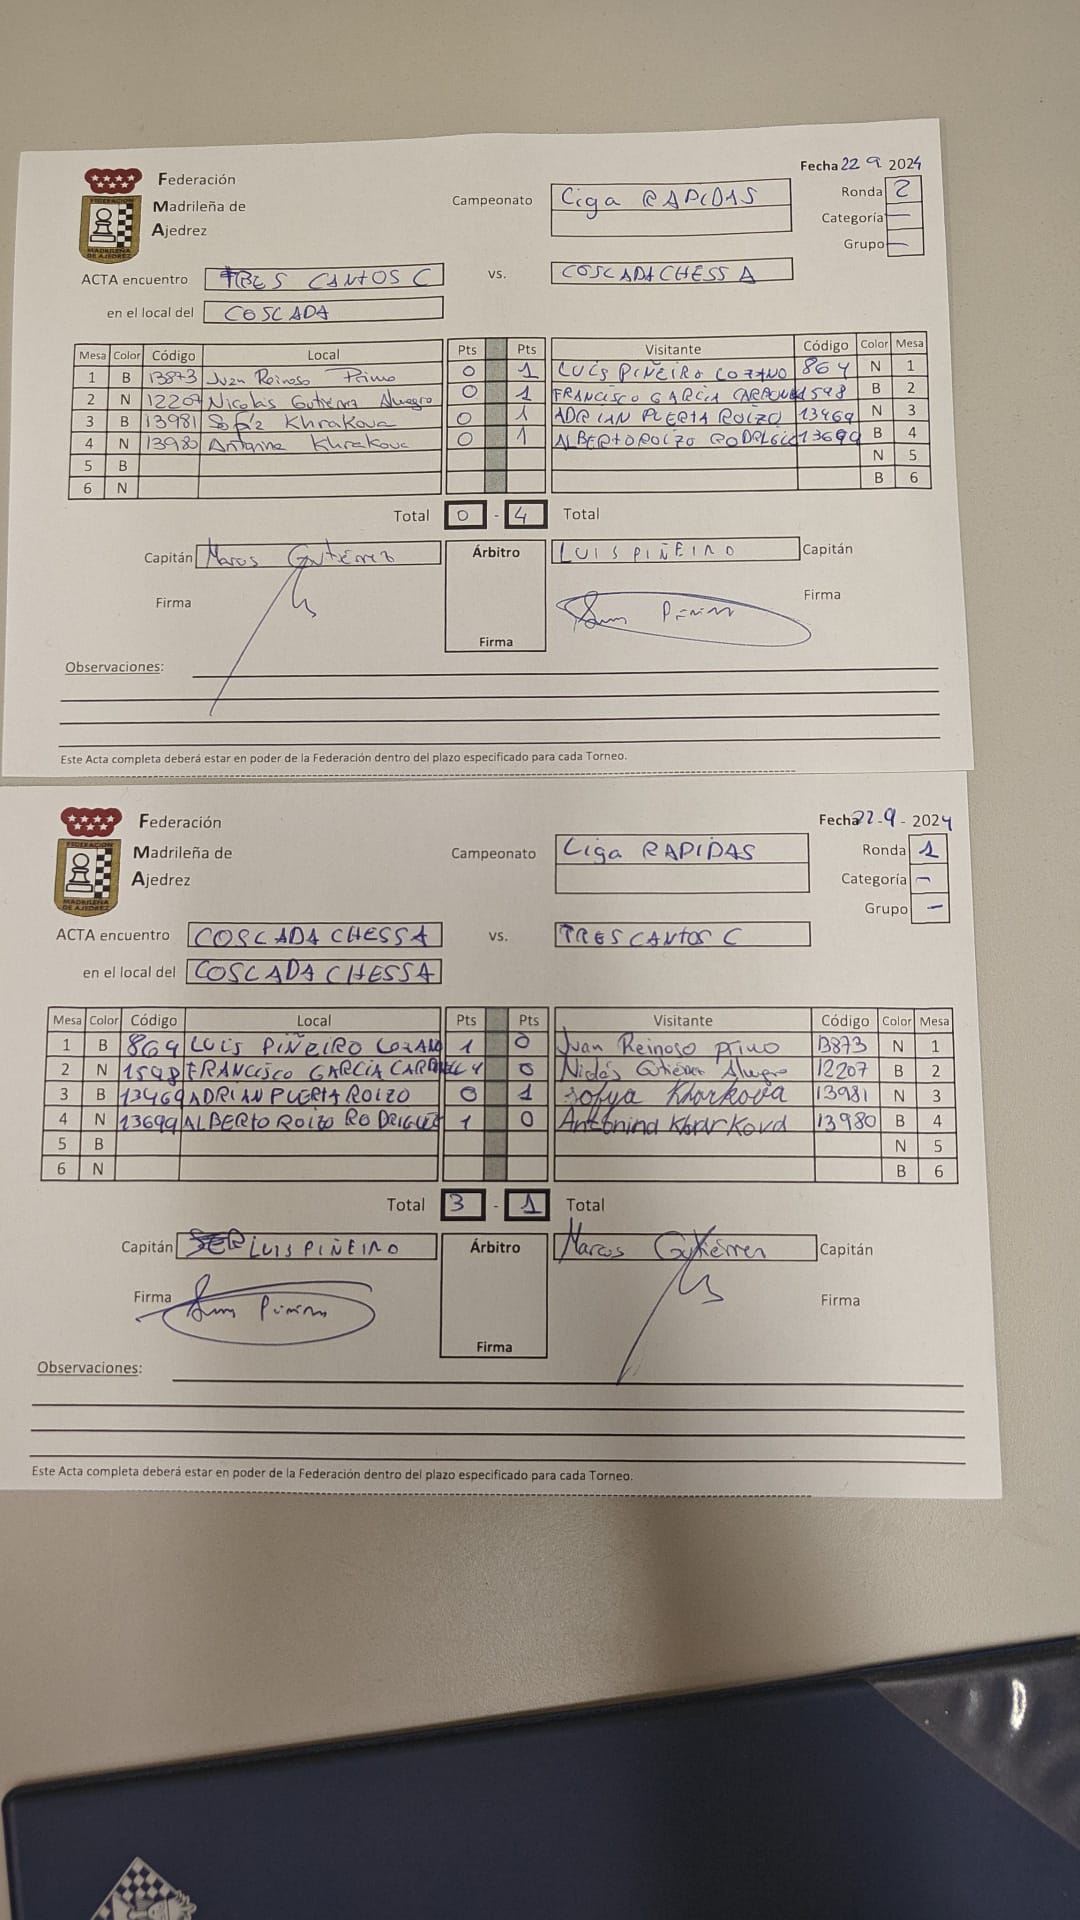 Fecha 22 9 2024
Federación
Madrileña de
Ajedrez
FEDERACIÓN
MADRILEÑA
DE AJEDREZ
Campeonato Liga RAPIDAS
Ronda 2
Categoría —
Grupo —
ACTA encuentro TRES CANTOS C vs. COSCADACHESS A
en el local del COSCADA
Mesa Color Código Local Pts Pts Visitante Código Color Mesa
1 B 13873 Juan Reinoso Primo 0 1 LUIS PIÑEIRO LOZANO 864 N 1
2 N 12207 Nicolás Gutiérrez Alvagro 0 1 FRANCISCO GARCIA 1598 B 2
3 B 13981 Khrakova 0 1 ADRIAN PUERTA ROIZO 13469 N 3
4 N 13980 Antonina Khrakova 0 1 ALBERTO ROIZO 13699 B 4
5 B N 5
6 N B 6
Total 0 - 4 Total
Capitán Marcos Gutiérrez Árbitro LUIS PIÑEIRO Capitán
Firma Firma
Firma
Observaciones:
Este Acta completa deberá estar en poder de la Federación dentro del plazo especificado para cada Torneo.
Fecha 22-9-2024
Federación
Madrileña de
Ajedrez
FEDERACIÓN
MADRILEÑA
DE AJEDREZ
Campeonato Liga RAPIDAS
Ronda 1
Categoría —
Grupo —
ACTA encuentro COSCADA CHESS A vs. TRES CANTOS C
en el local del COSCADA CHESS A
Mesa Color Código Local Pts Pts Visitante Código Color Mesa
1 B 864 LUIS PIÑEIRO LOZANO 1 0 Juan Reinoso Primo 13873 N 1
2 N 1598 FRANCISCO GARCIA 1 0 Nicolás Gutiérrez Alvagro 12207 B 2
3 B 13469 ADRIAN PUERTA ROIZO 0 1 Sofya Kharkova 13981 N 3
4 N 13699 ALBERTO ROIZO RODRIGUEZ 1 0 Antonina Kharkova 13980 B 4
5 B N 5
6 N B 6
Total 3 - 1 Total
Capitán LUIS PIÑEIRO Árbitro Marcos Gutiérrez Capitán
Firma Firma
Firma
Observaciones:
Este Acta completa deberá estar en poder de la Federación dentro del plazo especificado para cada Torneo.